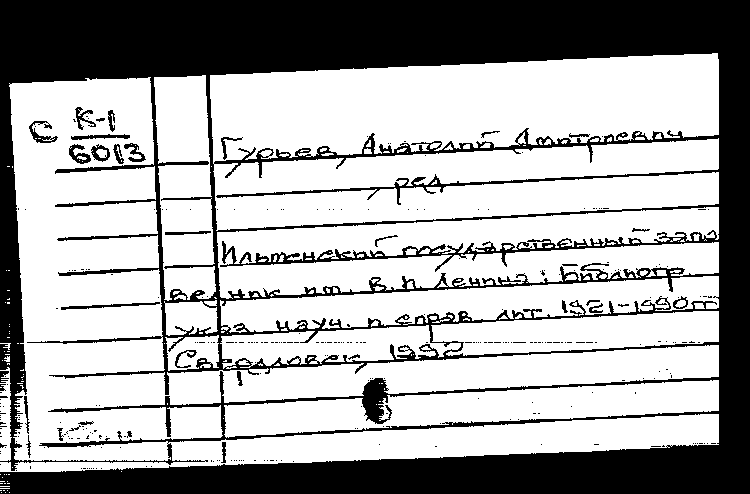 С К-1
6013
Гурьев, Анатолий Дмитриевич
, ред.
Ильменский государственный запо
ведник им. В.И. Ленина: Библиогр.
указ. науч. и справ. лит. 1921-1990гг
Свердловск, 1992